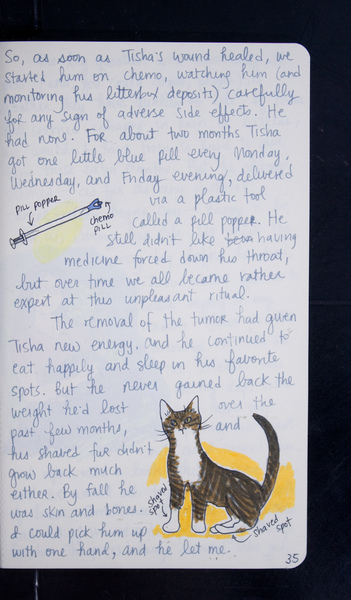 So, as soon as Tisha's wound healed, we
started him on chemo, watching him (and
monitoring his litterbox deposits) carefully
for any sign of adverse side effects. He
had none. For about two months Tisha
got one little blue pill every Monday,
Wednesday, and Friday evening, delivered
via a plastic tool
called a pill popper. He
still didn't like having
medicine forced down his throat,
but over time we all became rather
expert at this unpleasant ritual.
PILL POPPER
chemo
PILL
The removal of the tumor had given
Tisha new energy, and he continued to
eat happily and sleep in his favorite
spots. But he never gained back the
weight he'd lost over the
past few months, and
his shaved fur didn't
grow back much
either. By fall he
was skin and bones.
I could pick him up
with one hand, and he let me.
shaved
spot
shaved
spot
35